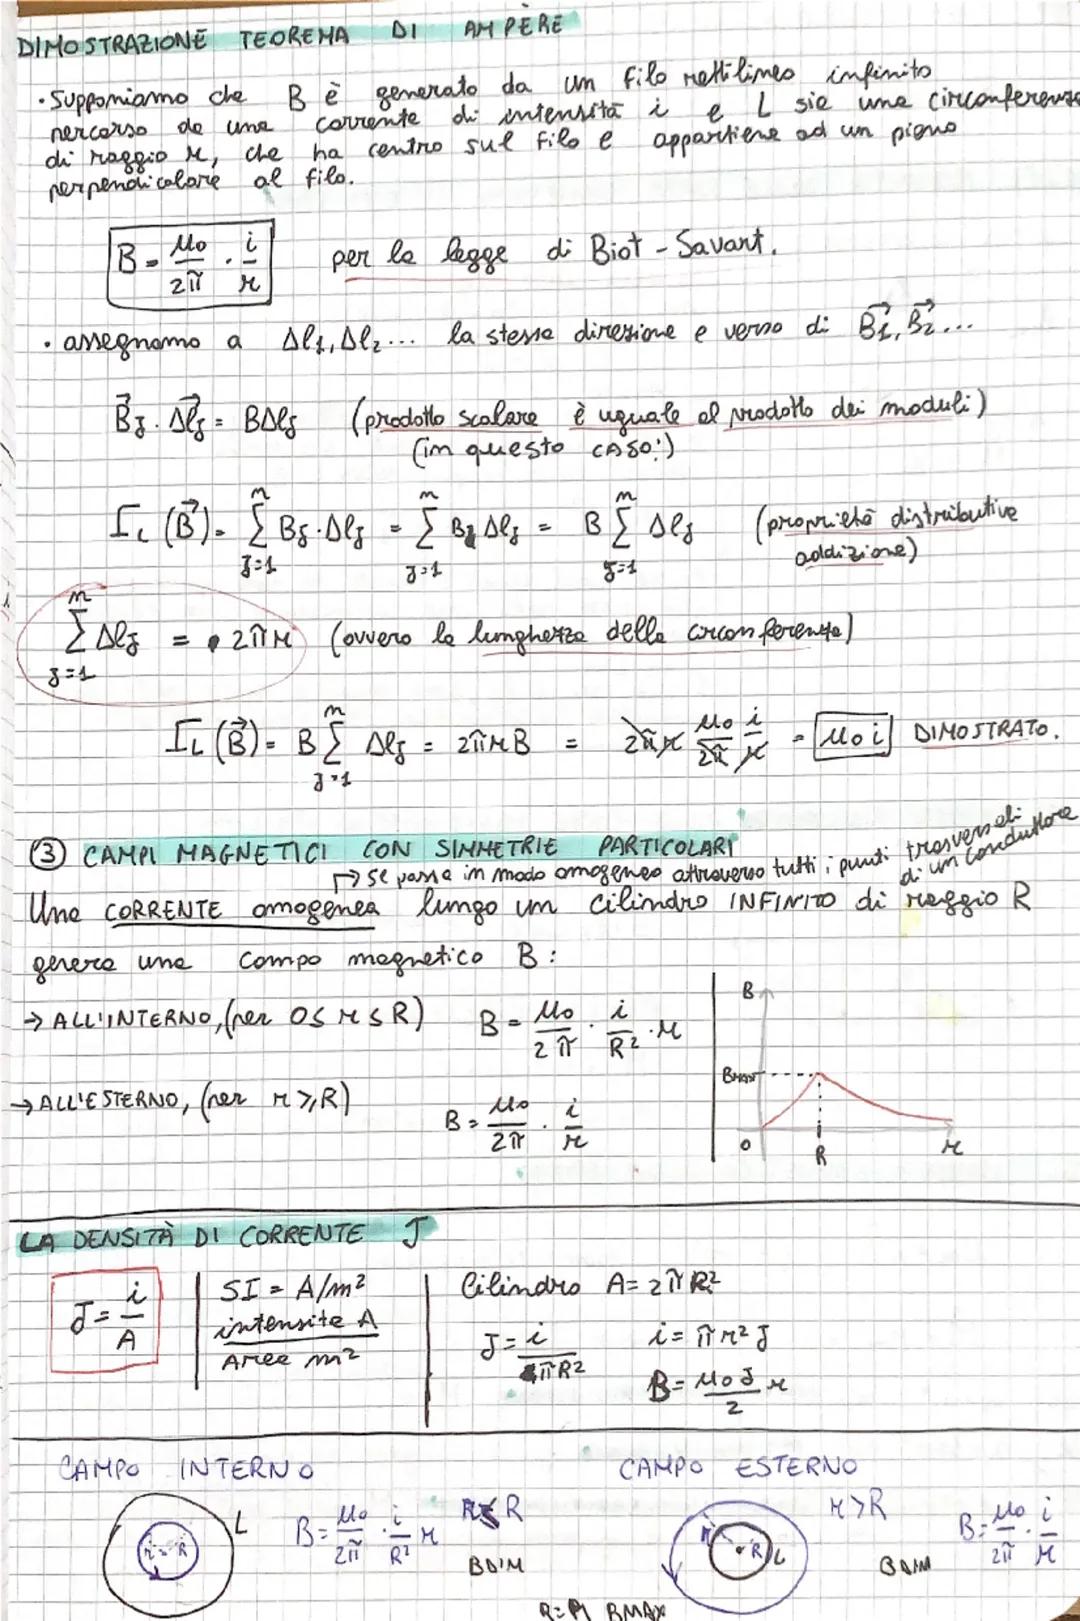 DIMOSTRAZIONE TEOREMA DI AMPÈRE
• Supponiamo che B è generato da un filo rettilineo infinito
percorso da una corrente di intensità i e L sia una circonferenza
di raggio r, che ha centro sul filo e appartiene ad un piano
perpendicolare al filo.
B = μ₀/2π · i/r per la legge di Biot - Savart.
• assegnamo a Δl₁, Δl₂... la stessa direzione e verso di B⃗₁, B⃗₂...
B⃗j · Δl⃗j = BΔlj (prodotto scalare è uguale al prodotto dei moduli)
(in questo caso:)
ΓL (B⃗) = Σ Bj · Δlj = Σ Bj Δlj = B Σ Δlj (proprietà distributiva
addizione)
n Σ j=1 Δlj = 2πr (ovvero la lunghezza della circonferenza)
ΓL (B⃗) = B n Σ j=1 Δlj = 2πrB = 2πr μ₀/2π i/r = μ₀i DIMOSTRATO.
③ CAMPI MAGNETICI CON SIMMETRIE PARTICOLARI
→ se passa in modo omogeneo attraverso tutti i punti trasversali
di un conduttore
Una CORRENTE omogenea lungo un cilindro INFINITO di raggio R
genera una campo magnetico B:
→ ALL'INTERNO, (per 0≤r≤R) B = μ₀/2π · i/R² · r
→ ALL'ESTERNO, (per r≥R) B = μ₀/2π · i/r
B
BMAX
0 R r
LA DENSITÀ DI CORRENTE J
J = i/A
SI = A/m²
intensità A
Area m²
Cilindro A = 2πR²
J = i/πR² i = πr²J
B = μ₀J/2 r
CAMPO INTERNO
r R L
B = μ₀/2π · i/R² r
R
B DIM
CAMPO ESTERNO
r R L
r > R
B = μ₀/2π · i/r
B DIM
BMAX